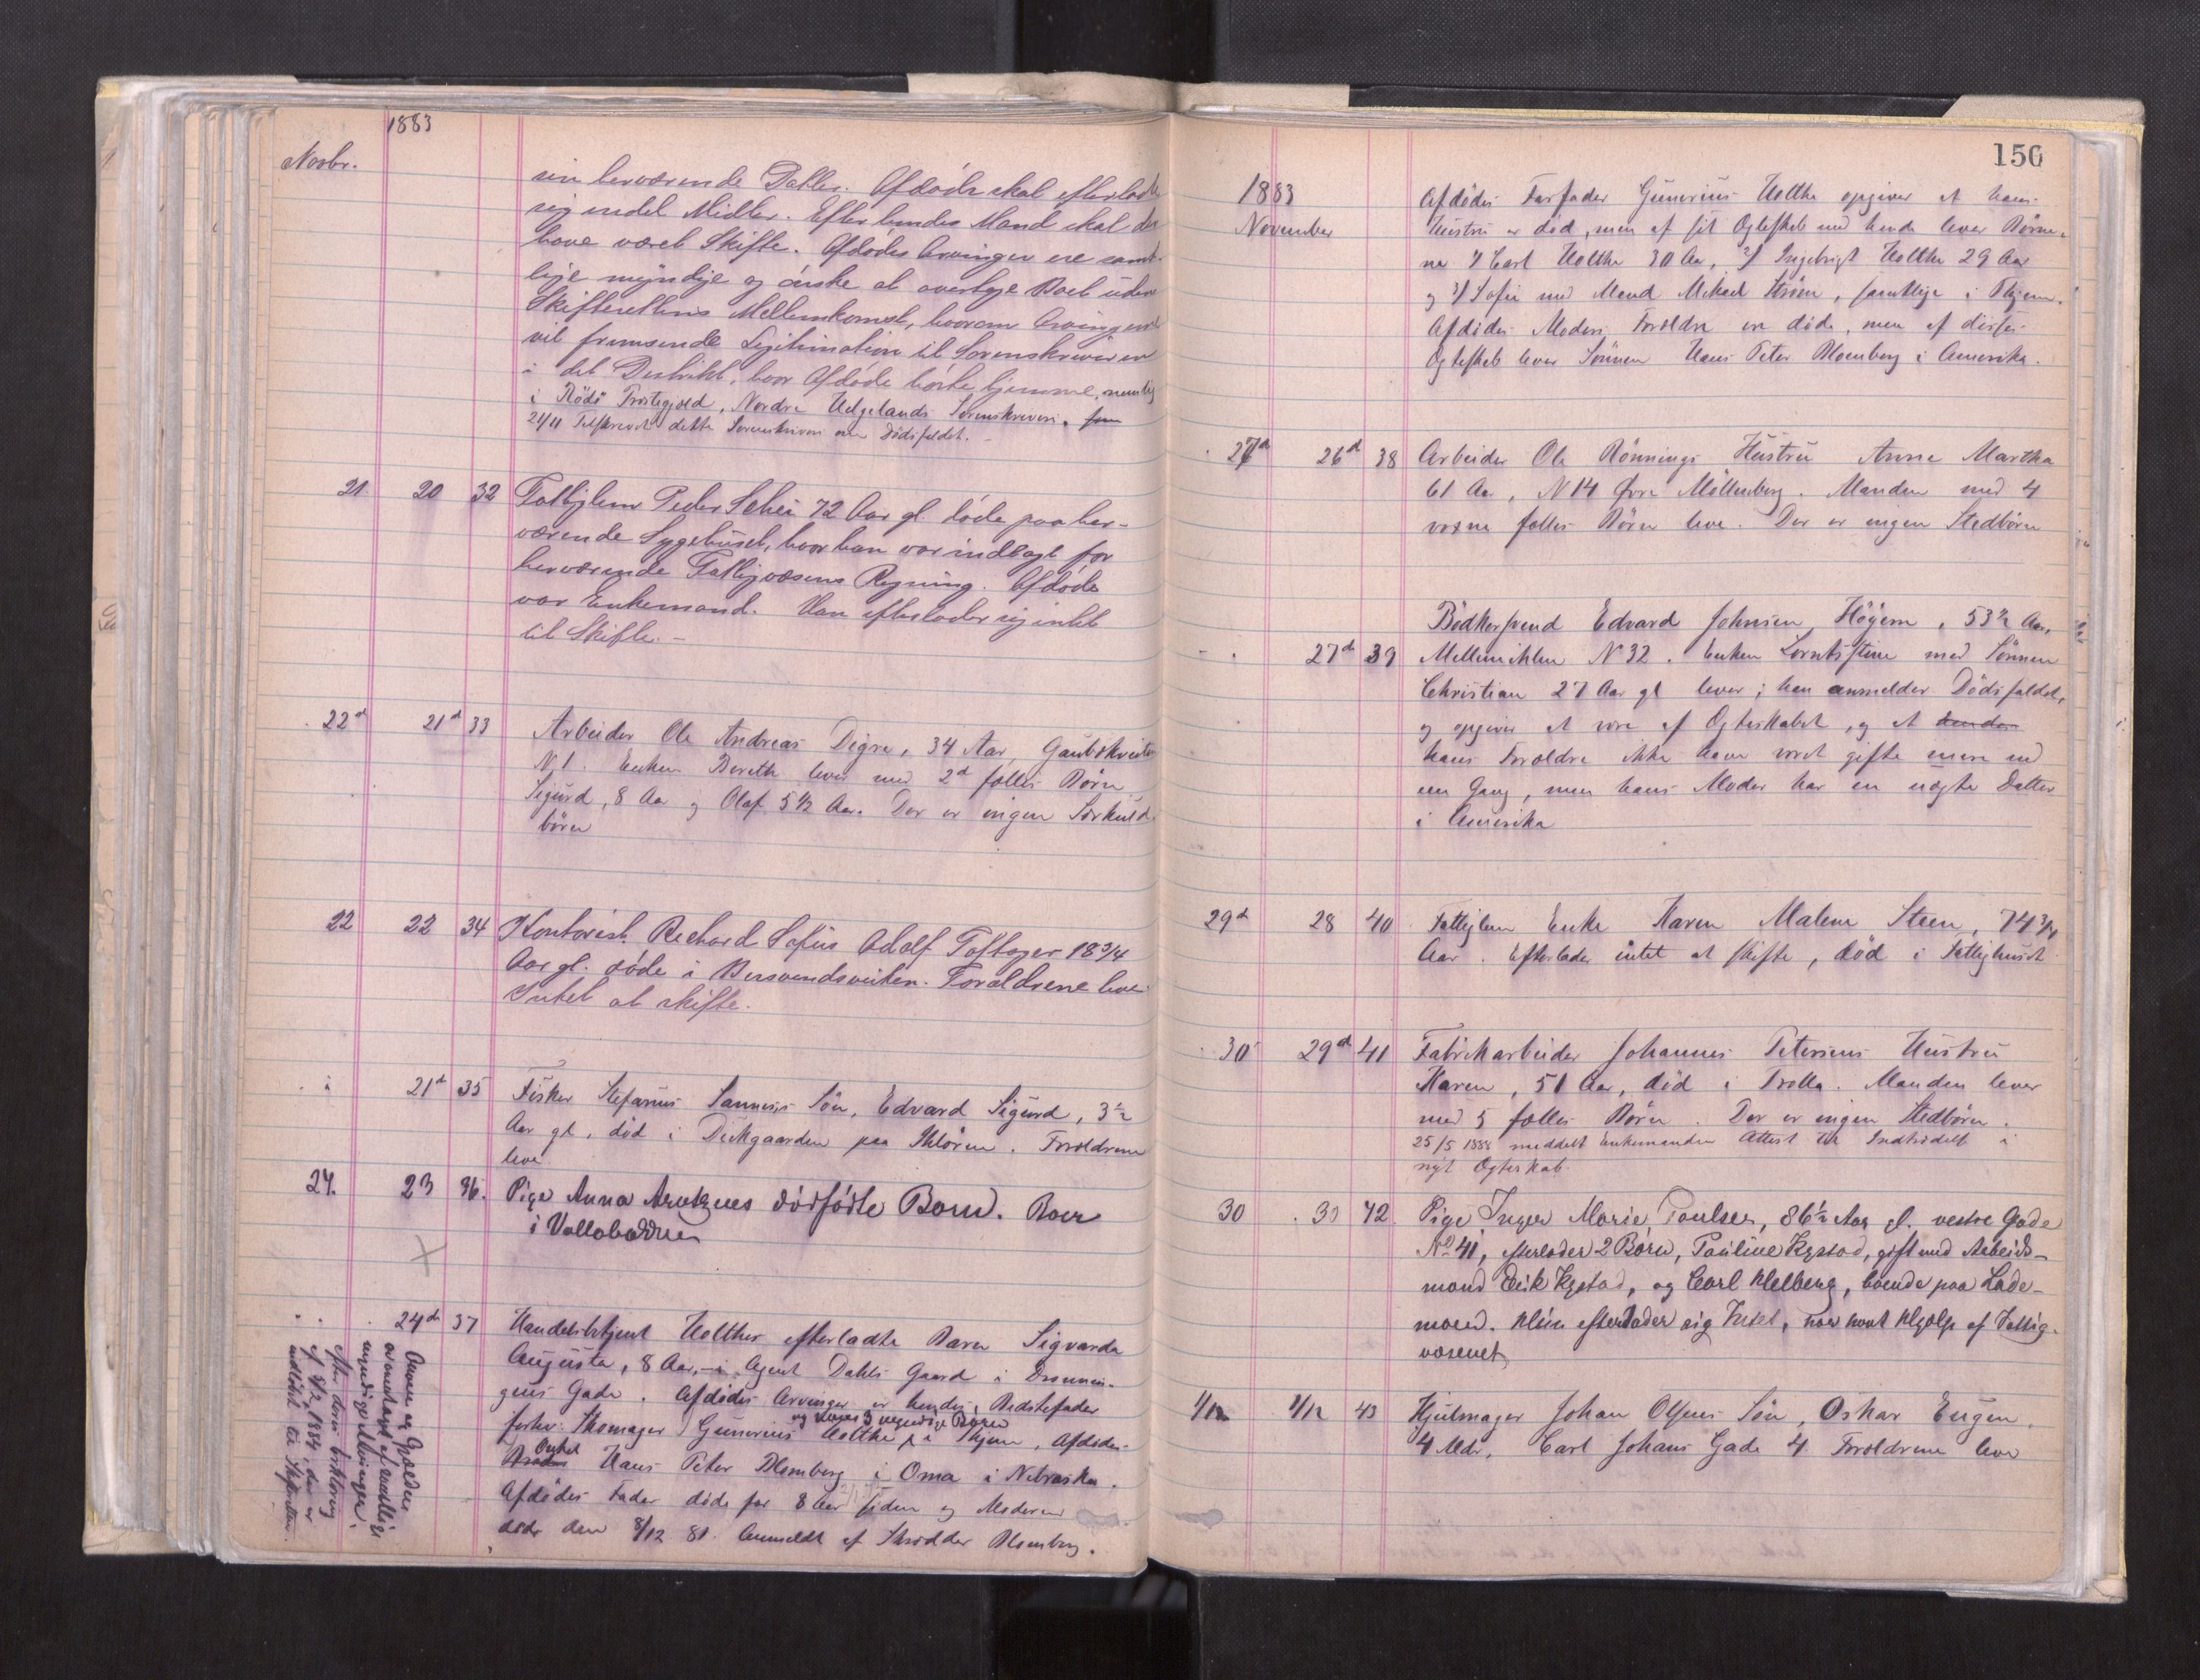 1883
Novbr.
sin herværende Datter. Afdøde skal efterlade
sig endel Midler. Efter hendes Mand skal der
have været Skifte. Afdødes Arvinger ere samt-
lige myndige og ønske at overtage Boet uden
Skifterettens Mellemkomst, hvorom Arvingerne
vil fremsende Legitimation til Sorenskriveren
i det Distrikt, hvor Afdøde hørte hjemme, nemlig
i Rödö Præstegjeld, Nordre Helgelands Sorenskriveri.
21/11 Tilskrevet dette Sorenskriveri om Dödsfaldet. -
21 20 32 Fattiglem Peder Schei 72 Aar gl. døde paa her-
værende Sygehuset, hvor han var indlagt for
herværende Fattigvæsens Regning. Afdøde
var Enkemand. Han efterlader sig intet
til Skifte. -
22d 21d 33 Arbeider Ole Andreas Digre, 34 Aar, Gaubækveiten
N 1. Enken Bereth lever med 2d fælles Børn
Sigurd, 8 Aar og Olaf 5 1/2 Aar. Der er ingen Særkuld
børn
22 22 34 Kontorist Richard Sofus Adolf Toftager 18 3/4
Aar gl. døde i Bersvendsveiten. Forældrene leve
Intet at skifte.
i 21d 35 Fisker Stefanus Sannæs's Søn, Edvard Sigurd, 3 1/2
Aar gl, død i Dickgaarden paa Ihlören. Forældrene
leve
24. 23 36. Pige Anna dödfödte Barn. Boer
i Vollabakken
24de 37 Handelsbetjent Holthes efterladte Barn Sigvarda
Augusta, 8 Aar, i Agent Dahls Gaard i Dronnin-
gens Gade. Afdødes Arvinger er hendes Bedstefader
og dennes 3 myndige Børn
forhv. Skomager Gunerius Holthe i Thjem, Afdødes
Onkel
Hans Peter Blomberg i Oma i Nebraska.
Afdødes Fader døde for 8 Aar siden og Moderen
døde den 8/12 81. Anmeldt af Skrædder Blomberg.
Arven og Gjælden
er vedtaget af samtlige
myndige Arvinger,
efter deres Erklæring
af 8/2 1884, der er
indløbet til Skifteretten.
150
1883
November
Afdødes Farfader Gunerius Holthe opgiver at hans
Hustru er død, men af sit Ægteskab med hende lever Børne-
ne 1/ Carl Holthe 30 Aar, 2/ Ingebrigt Holthe 29 Aar
og 3/ Sofie med Mand Mikael Strøm, samtlige i Thjem.
Afdødes Moders Forældre ere døde, men af disses
Ægteskab lever Sönnen Hans Peter Blomberg i Amerika.
27de 26d 38 Arbeider Ole Rønnings Hustru Anne Martha
61 Aar, N 14 Øvre Möllenberg. Manden med 4
voxne fælles Börn leve. Der er ingen Stedbörn
Bödkersvend Edvard Johnsen Höyem, 53 1/2 Aar,
27de 39 Mellemihlen N 32. Enken Lorntstine med Sönnen
Christian 27 Aar gl lever; han anmelder Dödsfaldet,
og opgiver at være af Ægteskabet, og at
hans Forældre ikke have været gifte mere end
een Gang, men hans Moder har en uægte Datter
i Amerika
29d 28 40 Fattiglem Enke Karen Malene Steen, 74 3/4
Aar. Efterlader intet at skifte, død i Fattighuset
30 29d 41 Fabrikarbeider Johannes Petersens Hustru
Karen, 51 Aar, død i Trolla. Manden lever
med 5 fælles Börn. Der er ingen Stedbørn.
25/5 1888 meddelt Enkemanden Attest til Indtrædelse i
nyt Ægteskab.
30 30 42 Pige Inger Marie Poulsen, 86 1/2 Aar gl. vestre Gade
No 41, efterlader 2 Børn, Pauline Rystad, gift med Arbeids-
mand Erik Rystad, og Carl Melberg, boende paa Lade-
moen. Hun efterlader sig Intet, har havt Hjælp af Fattig-
væsenet
1/12 1/12 43 Hjulmager Johan Olsens Søn, Oskar Eugen,
4 Mdr, Carl Johans Gade 4. Forældrene leve